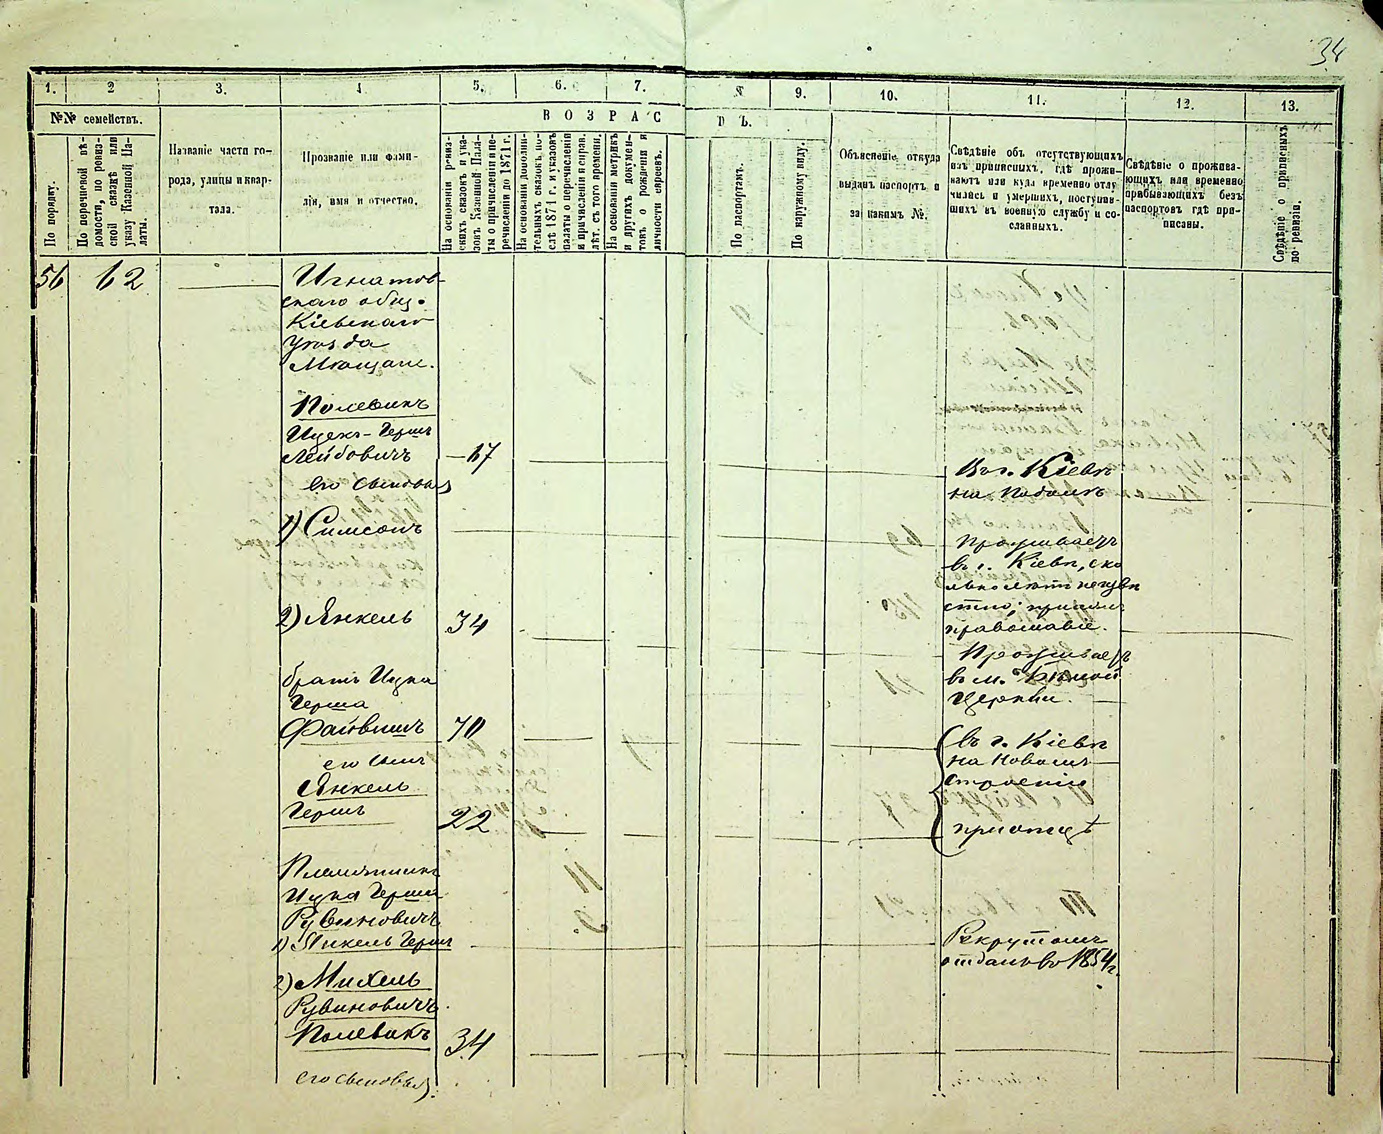 34
1. 2 3. 4. 5. 6. 7. 8 9. 10. 11. 12. 13.
№№ семействъ.
По порядку.
По посемейной вѣ-
домости, по ревиз-
ской сказкѣ или
указу Казенной Па-
латы.
Названіе части го-
рода, улицы и квар-
тала.
Прозваніе или фами-
лія, имя и отчество.
ВОЗРАСТЪ.
На основаніи ревиз-
скихъ сказокъ и ука-
зовъ Казенной Пала-
ты о причисленіи и пе-
речисленіи до 1871 г.
На основаніи дополни-
тельныхъ сказокъ, по-
слѣ 1871 г. и указовъ
палаты о перечисленіи
и причисленіи и справ.
лѣт. съ того времени.
На основаніи метрикъ
и другихъ докумен-
товъ о рожденіи и
личности евреевъ.
По паспортамъ.
По наружному виду.
Объясненіе, откуда
выданъ паспортъ и
за какимъ №.
Свѣдѣніе объ отсутствующихъ
изъ приписныхъ, гдѣ прожи-
ваютъ или куда временно отлу-
чились и умершихъ, поступив-
шихъ въ военную службу и со-
сланныхъ.
Свѣдѣніе о прожива-
ющихъ или временно
прибывающихъ безъ
паспортовъ гдѣ при-
писаны.
Свѣдѣніе о приписныхъ
по ревизіи.
56 62 Игнатов-
скаго общ.
Кіевскаго
уѣзда
Мѣщане.
Полевикъ
Ицекъ-Гершъ
Лейбовичъ 67 Въ г. Кіевѣ
на Подолѣ
его сыновья
1) Симсонъ Проживаетъ
въ г. Кіевѣ, ско
лько лѣтъ неизвѣ
стно; принялъ
православіе.
2) Янкель 34 Проживаетъ
въ м. Бѣлой
Церкви.
братъ Ицка
Герша
Файвишъ 70 въ г. Кіевѣ
на Новомъ
строеніи
его сынъ
Янкель
Гершъ 22 при отцѣ
Племянники
Ицка Герша
Рувиновичъ
1) Янкель Гершъ Рекрутомъ
отданъ въ 1854 г.
2) Михель
Рувиновичъ
Полевикъ 34
его сыновья